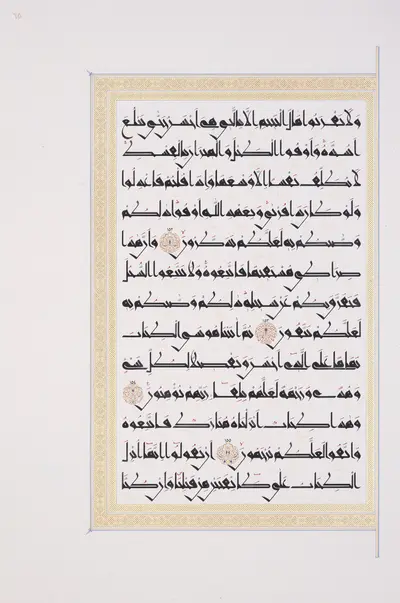 ولا تقربوا مال اليتيم الا بالتي هي احسن حتى يبلغ
اشده واوفوا الكيل والميزان بالقسط
لا نكلف نفسا الا وسعها واذا قلتم فاعدلوا
ولو كان ذا قربى وبعهد الله اوفوا ذلكم
وصىكم به لعلكم تذكرون وان هذا
صراطي مستقيما فاتبعوه ولا تتبعوا السبل
فتفرق بكم عن سبيله ذلكم وصىكم به
لعلكم تتقون ثم اتينا موسى الكتاب
تماما على الذي احسن وتفصيلا لكل شيء
وهدى ورحمة لعلهم بلقاء ربهم يؤمنون
وهذا كتاب انزلناه مبارك فاتبعوه
واتقوا لعلكم ترحمون ان تقولوا انما انزل
الكتاب على طائفتين من قبلنا وان كنا